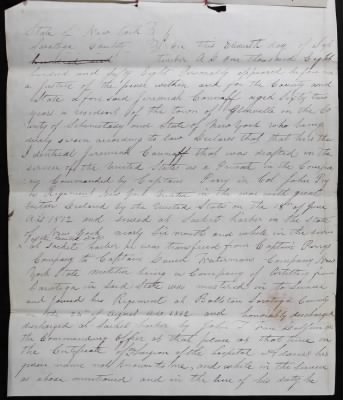 State of New York
Saratoga County On this Eleventh day of Sept
tember A.D. one thousand Eight
hundred and fifty Eight Personally appeared before me
a Justice of the peace within and for the County and
State aforesaid Jeremiah aged Sixty two
years a resident of the town of Glenville in the Co
unty of Schenectady and State of New York who being
duly sworn according to law declares that that he is the
Identical Jeremiah that was drafted in the
service of the United States as a Private in the Company
Commanded by Captain Perry in Col John
Regiment in the war with great
britain declared by the United States on the 18th of June
A.D. 1812 and served at Sacket harbor in the State
of New York nearly Six month and while in the service
at Sacket harbor he was transfered from Captain Perrys
Company to Captain Watermans Company New
York State militia being a Company of from
Saratoga in Said State was mustered in to Service
and joined his Regiment at Ballston Saratoga County
on the of August A.D. 1812 and honorably discharged
discharged at Sacket harbor by John
the Commanding Officer at that place at that time on
the Certificate of Surgeon of the hospital
given name not known to me, and while in the Service
as above mentioned and in the line of his duty he